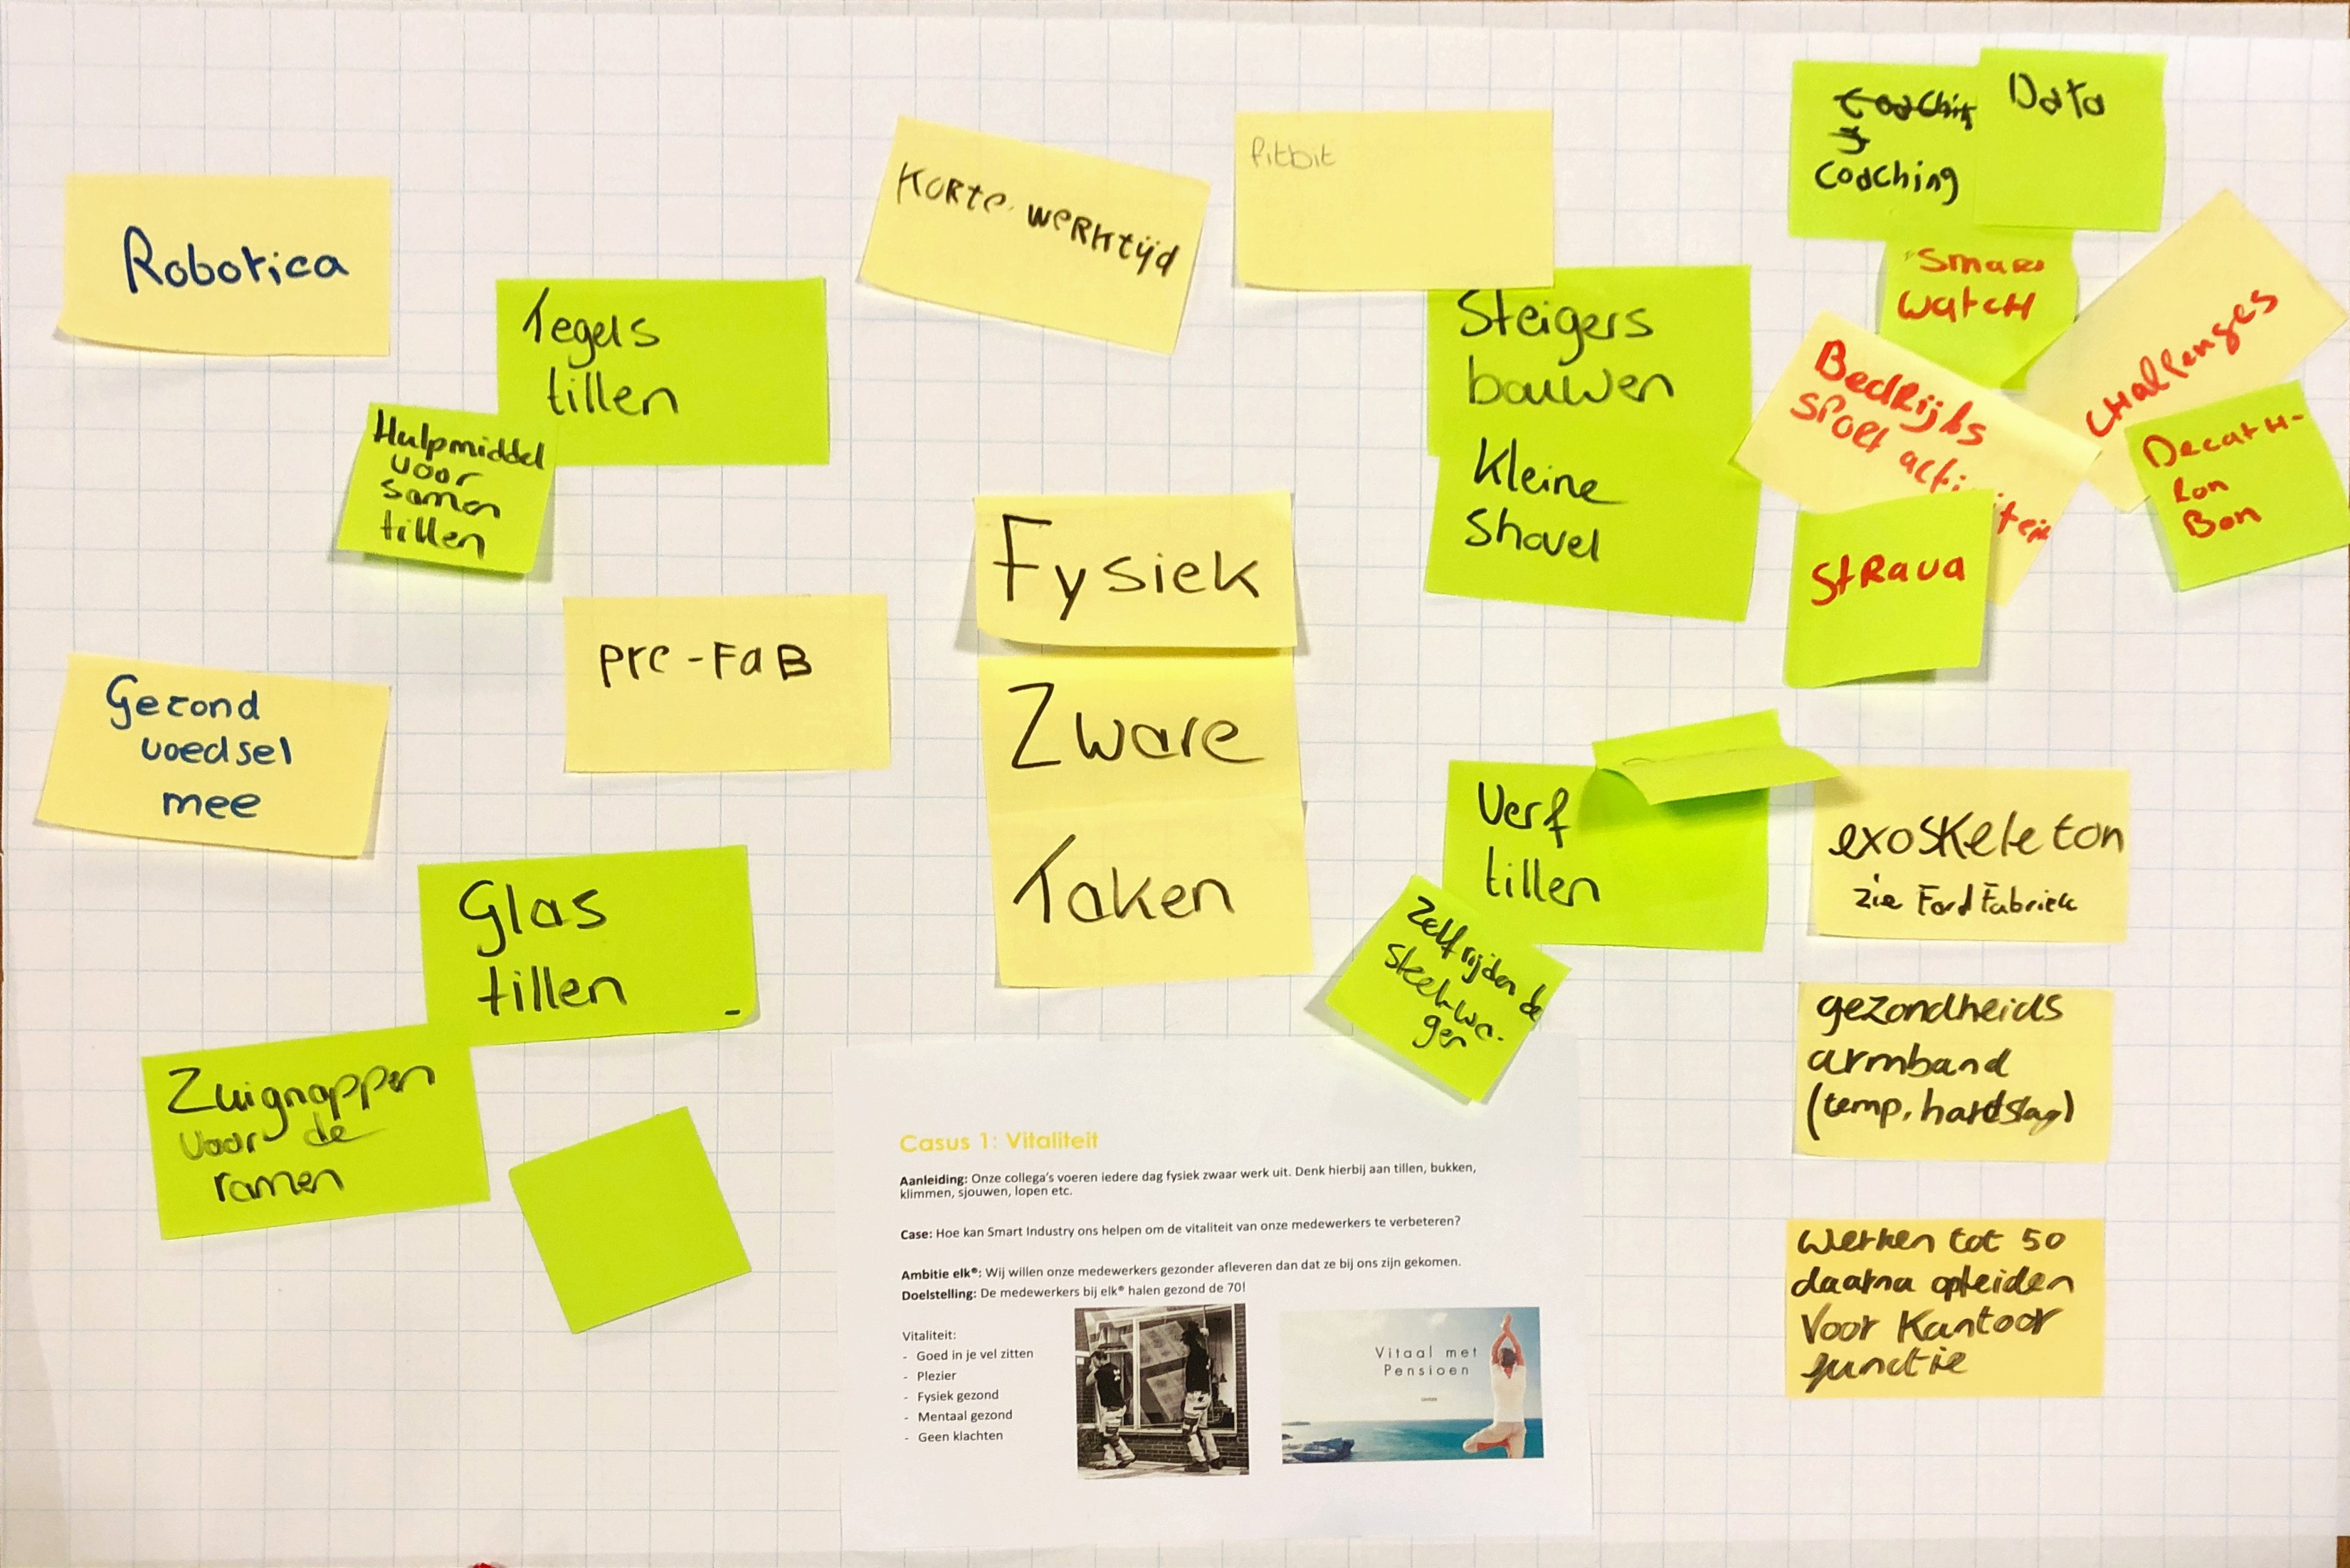 Robotica
Tegels
tillen
Hulpmiddel
voor
samen
tillen
Korte werktijd
fitbit
Coaching
Coaching
Data
Smart
watch
Challenges
Decath-
lon
Bon
Bedrijfs
sport
Strava
Steigers
bouwen
Kleine
Shovel
Fysiek
Zware
Taken
pre-FaB
Gezond
voedsel
mee
Glas
tillen
Zuignappen
voor de
ramen
Verf
tillen
Zelfrijdende
steekwa-
gen
exoskeleton
zie Ford Fabriek
gezondheids
armband
(temp, hartslag)
Werken tot 50
daarna opleiden
Voor Kantoor
functie
Casus 1: Vitaliteit
Aanleiding: Onze collega's voeren iedere dag fysiek zwaar werk uit. Denk hierbij aan tillen, bukken,
klimmen, sjouwen, lopen etc.
Case: Hoe kan Smart Industry ons helpen om de vitaliteit van onze medewerkers te verbeteren?
Ambitie elk®: Wij willen onze medewerkers gezonder afleveren dan dat ze bij ons zijn gekomen.
Doelstelling: De medewerkers bij elk® halen gezond de 70!
Vitaliteit:
- Goed in je vel zitten
- Plezier
- Fysiek gezond
- Mentaal gezond
- Geen klachten
Vitaal met
Pensioen